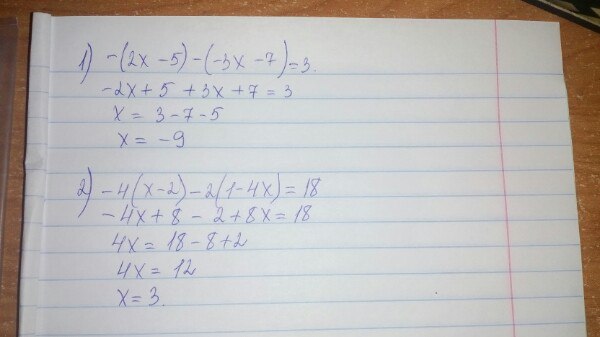 1) -(2x-5)-(-3x-7)=3.
-2x+5+3x+7=3
x=3-7-5
x=-9
2) -4(x-2)-2(1-4x)=18
-4x+8-2+8x=18
4x=18-8+2
4x=12
x=3.